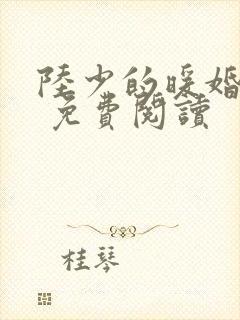 陸少的暖婚
免費閱讀
桂琴